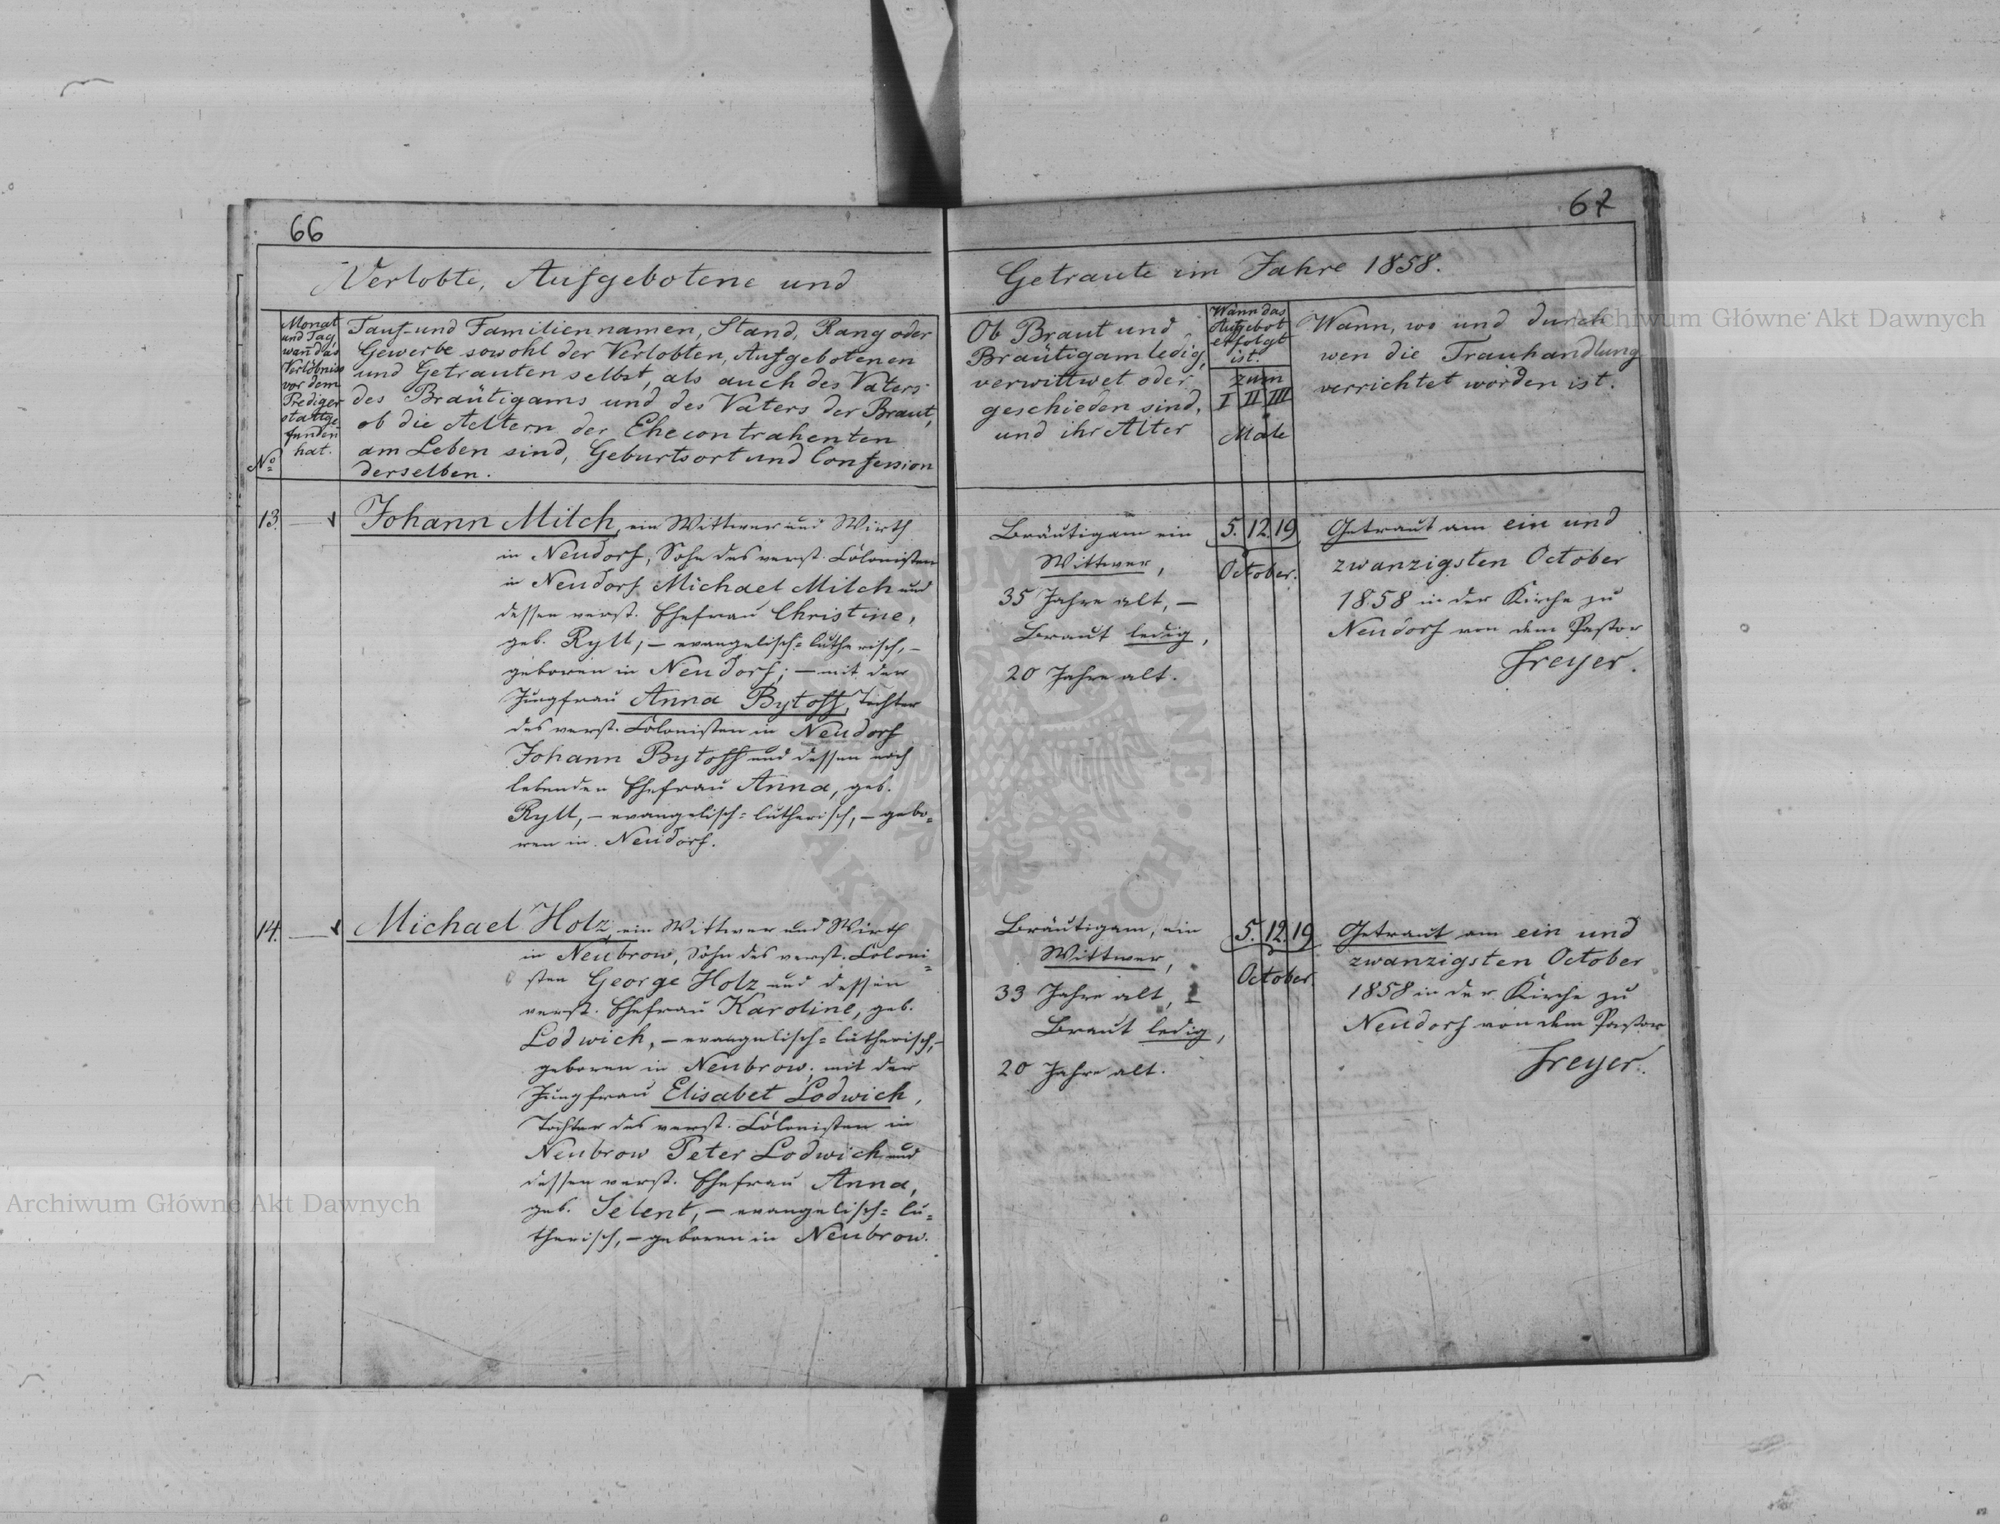 66
Verlobte, Aufgebotene und
No
Monat
und Tag,
wan das
Verlöbniss
vor dem
Prediger
stattge-
funden
hat.
Tauf- und Familiennamen, Stand, Rang oder
Gewerbe sowohl der Verlobten, Aufgebotenen
und Getrauten selbst, als auch des Vaters
des Bräutigams und des Vaters der Braut,
ob die Aeltern der Ehecontrahenten
am Leben sind, Geburtsort und Confession
derselben.
13.
Johann Milch, ein Wittwer und Wirth
in Neudorf, Sohn des verst. Colonisten
in Neudorf Michael Milch und
dessen verst. Ehefrau Christine,
geb. Rytt, – evangelisch-lutherisch, –
geboren in Neudorf; – mit der
Jungfrau Anna Bytoff, Tochter
des verst. Colonisten in Neudorf
Johann Bytoff und dessen noch
lebenden Ehefrau Anna, geb.
Rytt, – evangelisch-lutherisch, – gebo-
ren in Neudorf.
14.
Michael Holz, ein Wittwer und Wirth
in Neubrow, Sohn des verst. Coloni-
sten George Holz und dessen
verst. Ehefrau Karoline, geb.
Lodwich, – evangelisch-lutherisch, –
geboren in Neubrow, mit der
Jungfrau Elisabet Lodwich,
Tochter des verst. Colonisten in
Neubrow Peter Lodwich und
dessen verst. Ehefrau Anna,
geb. Selent, – evangelisch-lu-
therisch, – geboren in Neubrow.
67
Getraute im Jahre 1858.
Ob Braut und
Bräutigam ledig,
verwittwet oder
geschieden sind,
und ihr Alter
Wann das
Aufgebot
erfolgt
ist.
zum
I II III
Male
Wann, wo und durch
wen die Trauhandlung
verrichtet worden ist.
Bräutigam ein
Wittwer,
35 Jahre alt, –
Braut ledig,
20 Jahre alt.
5. 12. 19
October.
Getraut am ein und
zwanzigsten October
1858 in der Kirche zu
Neudorf von dem Pastor
Freyer.
Bräutigam, ein
Wittwer,
33 Jahre alt, –
Braut ledig,
20 Jahre alt.
5. 12. 19
October
Getraut am ein und
zwanzigsten October
1858 in der Kirche zu
Neudorf von dem Pastor
Freyer.
Archiwum Główne Akt Dawnych
Archiwum Główne Akt Dawnych